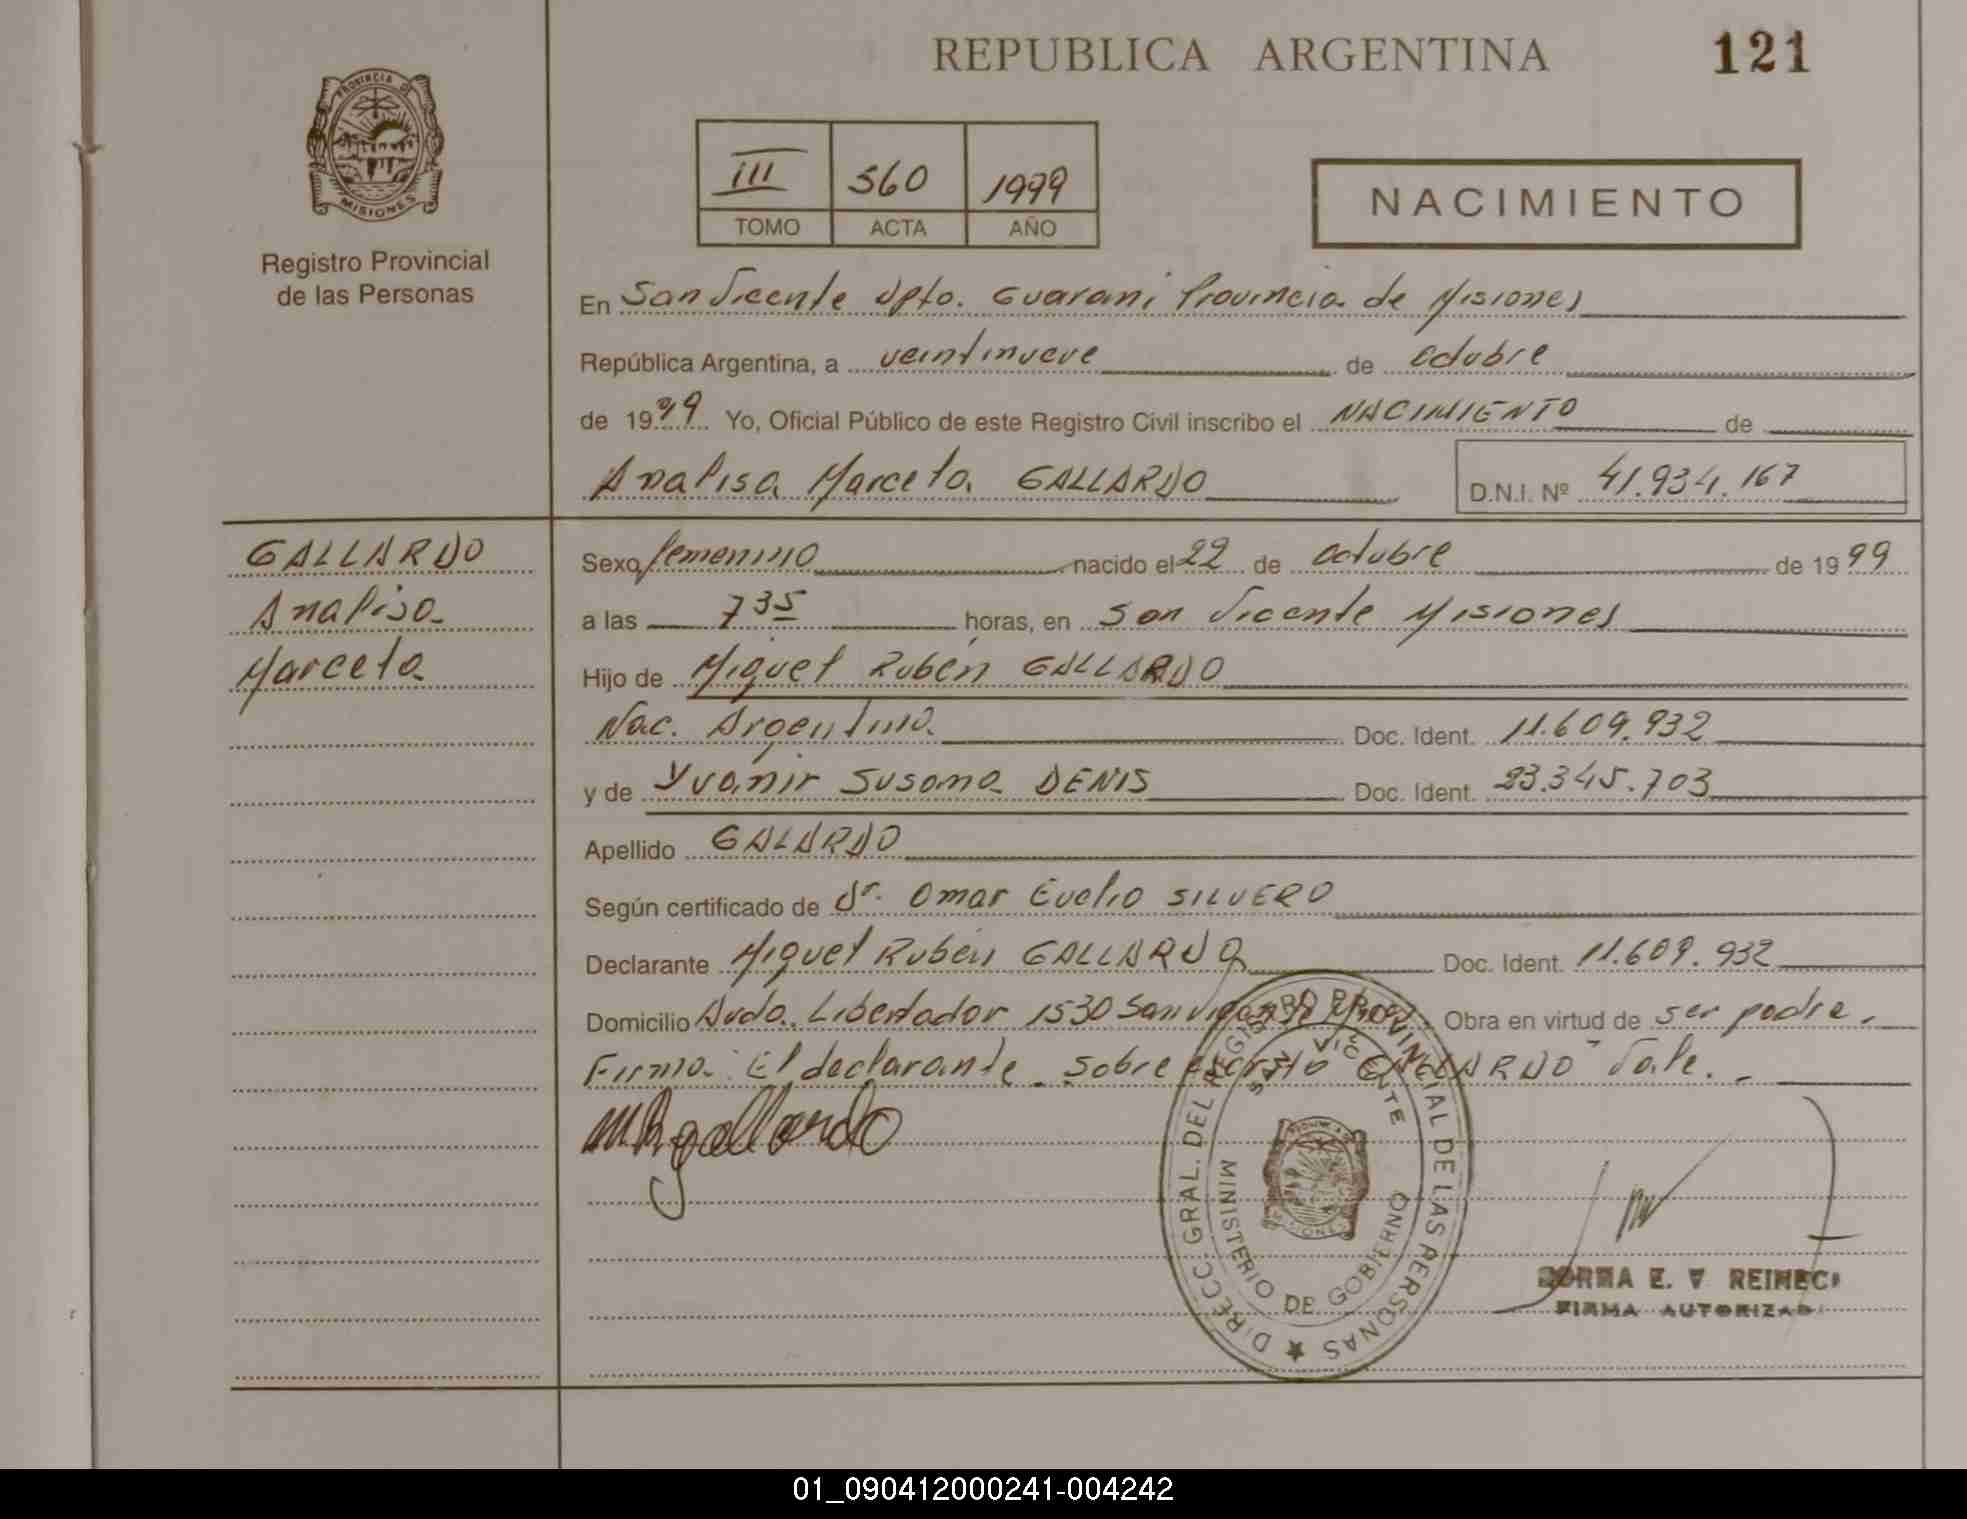 REPUBLICA ARGENTINA
121
PROVINCIA DE
MISIONES
Registro Provincial
de las Personas
III 560 1999
TOMO ACTA AÑO
NACIMIENTO
En San Vicente Dpto. Guaraní Provincia de Misiones
República Argentina, a veintinueve de octubre
de 1999 Yo, Oficial Público de este Registro Civil inscribo el NACIMIENTO de
Analisa Marcela GALLARDO
D.N.I. Nº 41.934.167
GALLARDO
Analisa
Marcela
Sexo femenino nacido el 22 de octubre de 1999
a las 7 35 horas, en San Vicente Misiones
Hijo de Miguel Rubén GALLARDO
Nac. Argentina Doc. Ident. 11.609.932
y de Yvanir Susana DENIS Doc. Ident. 23.345.703
Apellido GALARDO
Según certificado de Dr. Omar Evelio SILVERO
Declarante Miguel Rubén GALLARDO Doc. Ident. 11.609.932
Domicilio Avda. Libertador 1530 San Vicente Obra en virtud de ser padre.
Firma: El declarante. Sobre escrito "GALLARDO" Vale.-
MRgallardo
DIRECC. GRAL. DEL REGISTRO PROVINCIAL DE LAS PERSONAS
SAN VICENTE
MINISTERIO DE GOBIERNO
NORMA E. V REINECK
FIRMA AUTORIZADA
01_090412000241-004242